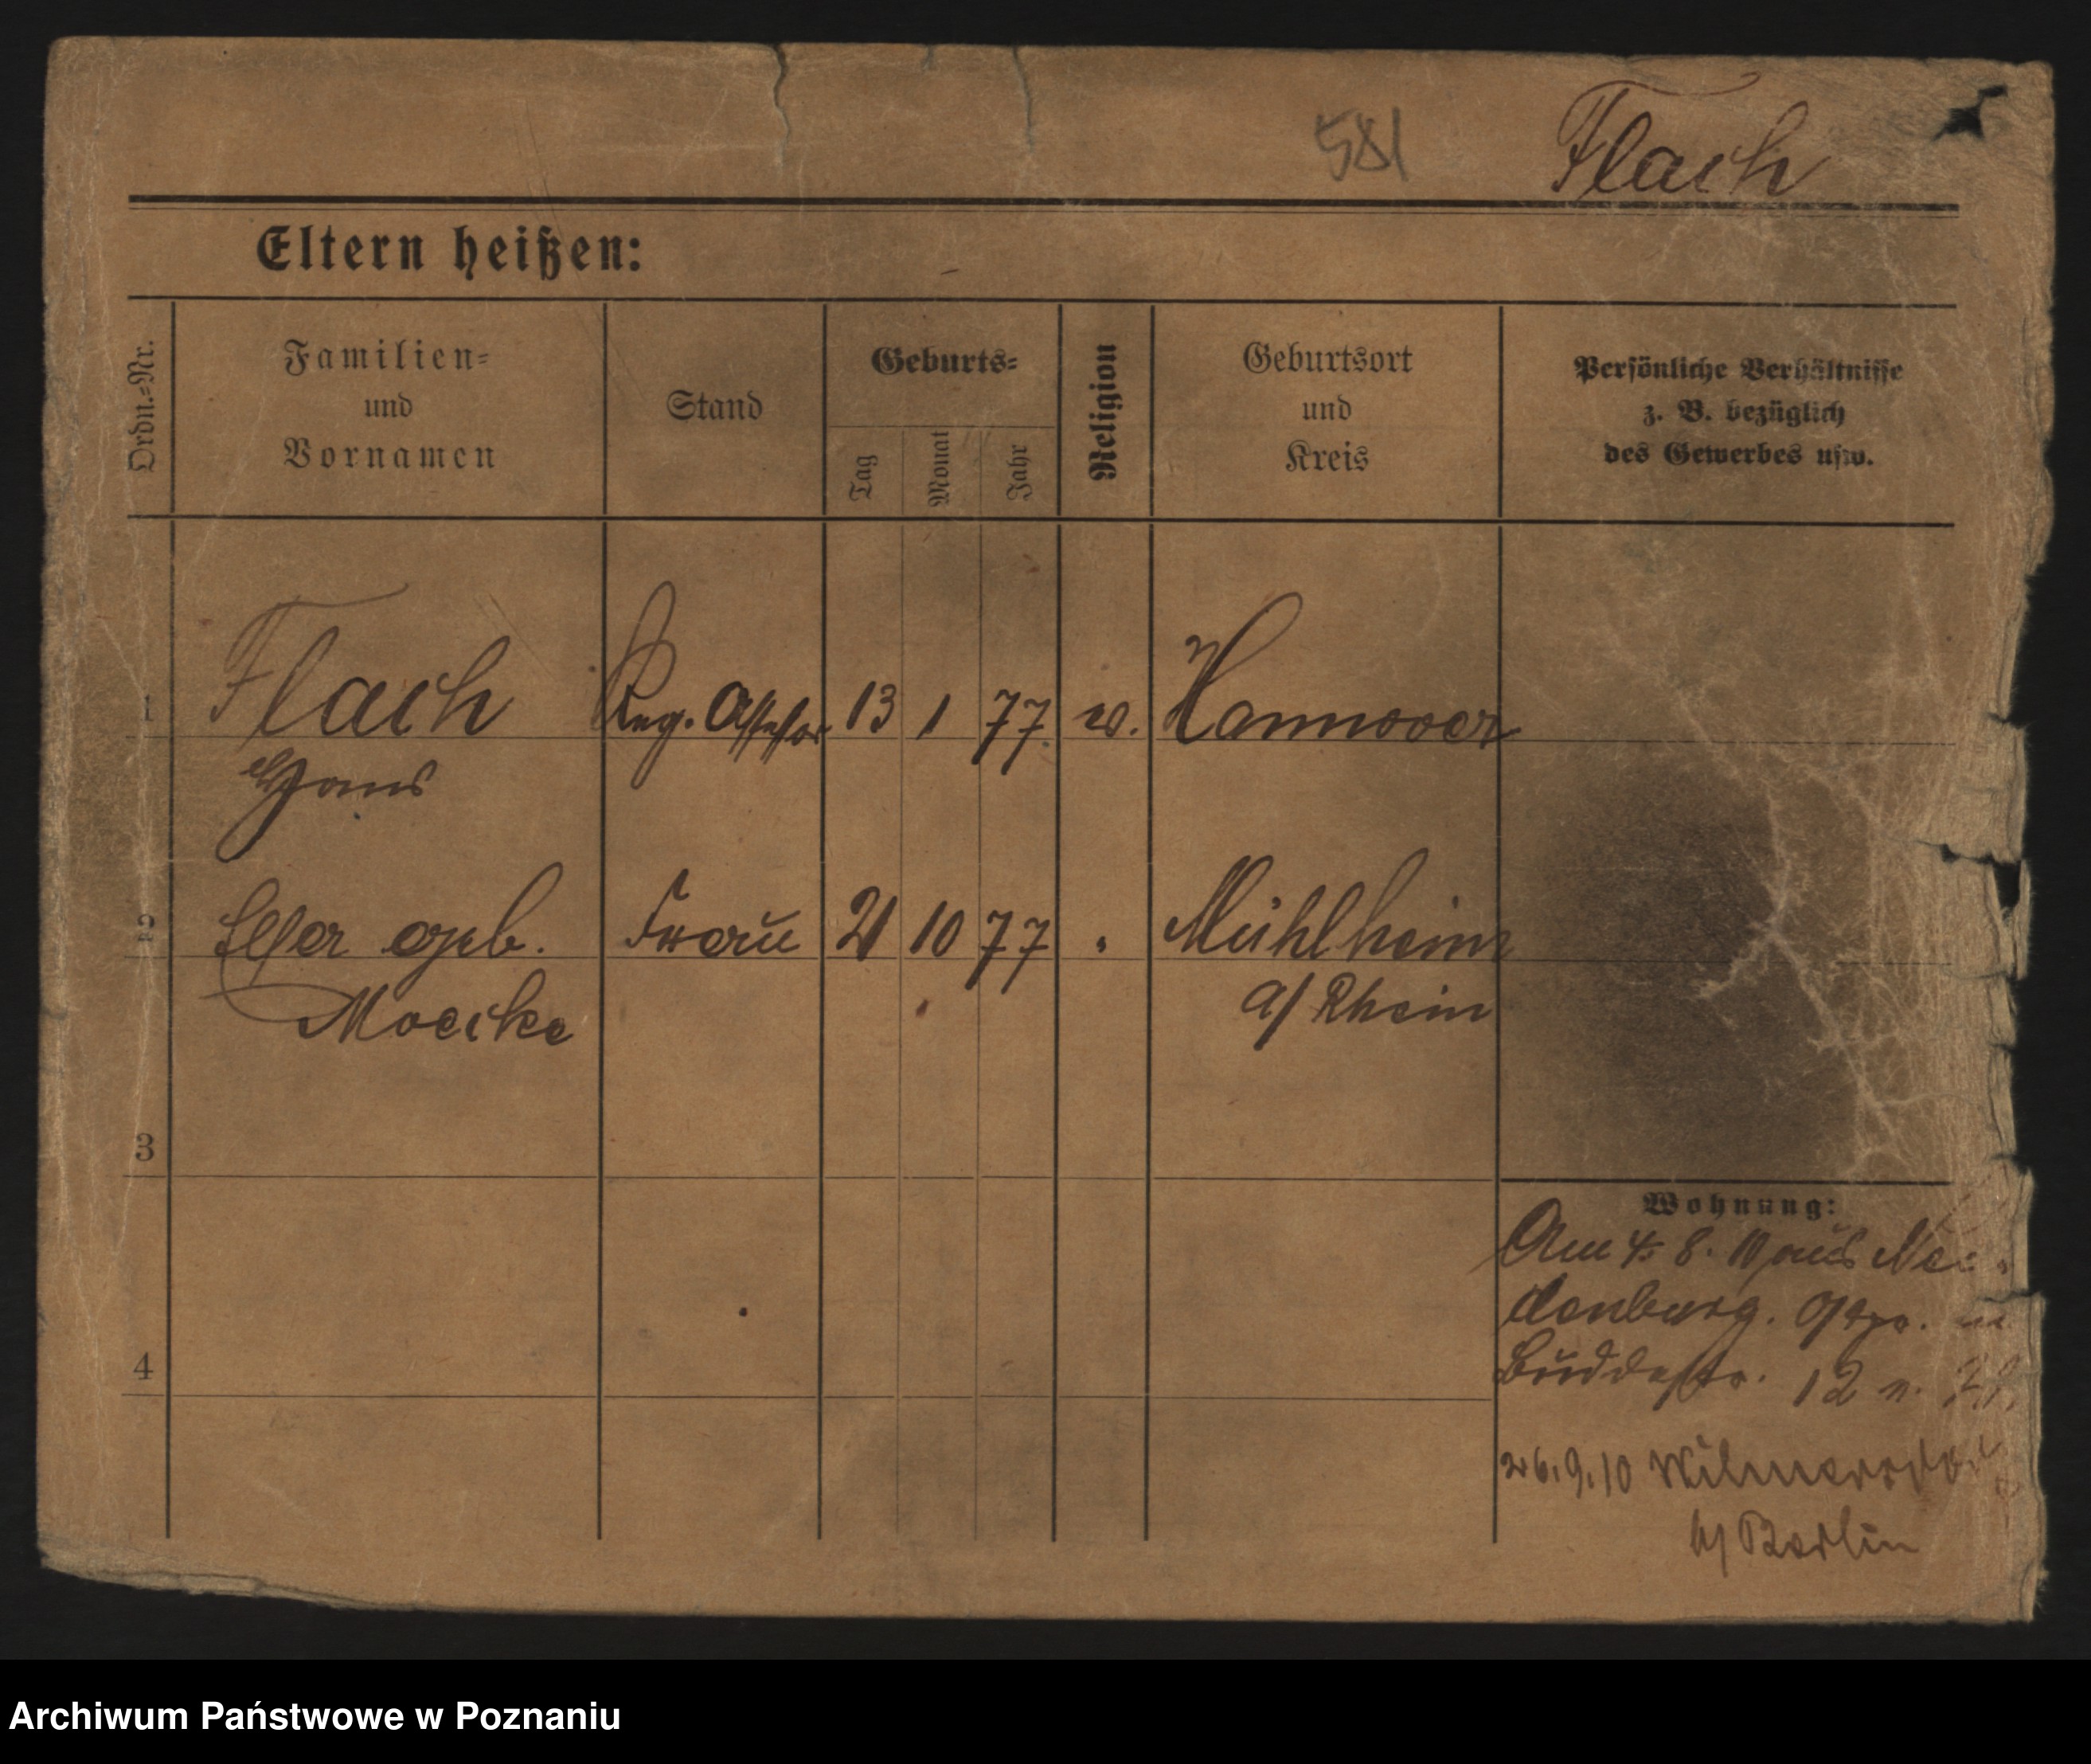 581 Flach
Eltern heißen:
Ordn.-Nr.
Familien-
und
Vornamen
Stand
Geburts-
Tag
Monat
Jahr
Religion
Geburtsort
und
Kreis
Persönliche Verhältnisse
z. B. bezüglich
des Gewerbes usw.
1 Flach Reg. Assessor 13 1 77 ev. Hannover
Hans
2 geb. Frau 21 10 77 " Mühlheim
Moecke a/ Rhein
3
Wohnung:
Am 4. 8. 10 aus Nei-
denburg. Ostpr. in
4
Buddestr. 12 n.
26.9.10 Wilmersdorf
b/ Berlin
Archiwum Państwowe w Poznaniu